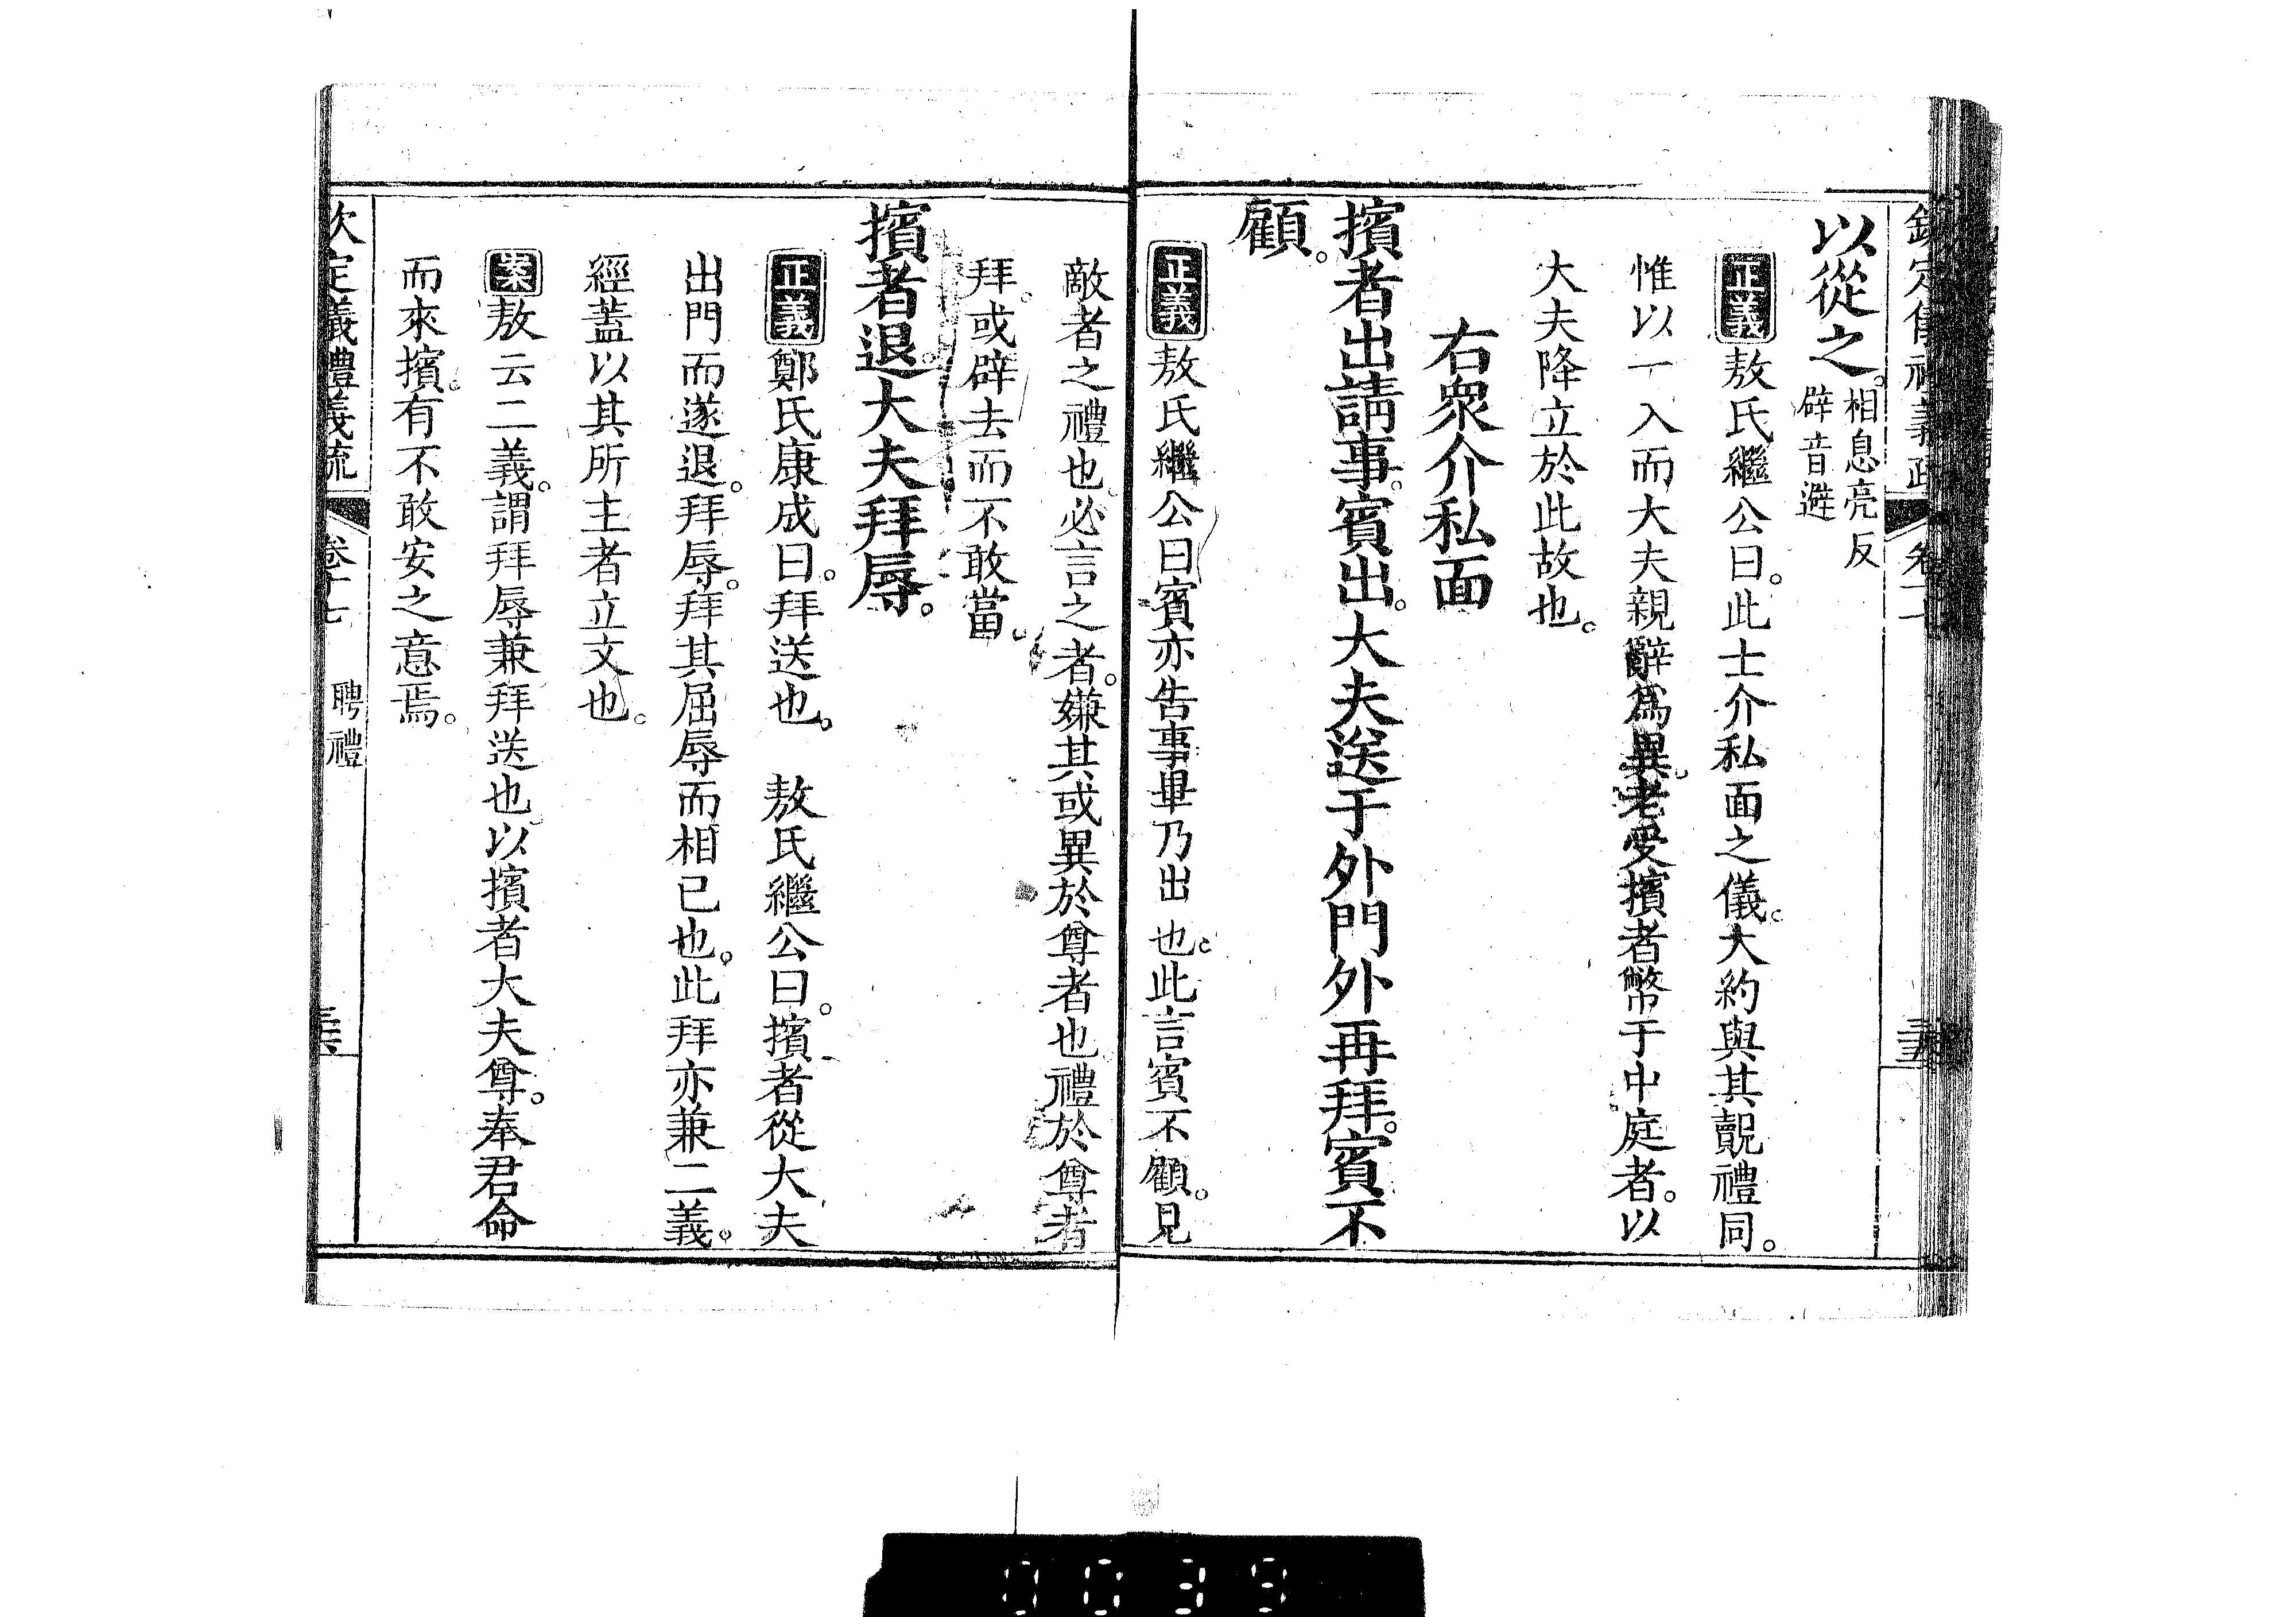 以從之。相息亮反
辟音避
正義敖氏繼公曰。此士介私面之儀。大約與其覿禮同。
惟以一入而大夫親辭為異。老受擯者幣于中庭者。以
大夫降立於此故也。
右眾介私面
擯者出請事。賓出。大夫送于外門外再拜。賓不
顧。
正義敖氏繼公曰賓亦告事畢乃出也。此言賓不顧。見
敵者之禮也。必言之者。嫌其或異於尊者也禮於尊者
拜。或辟去而不敢當。
擯者退。大夫拜辱。
正義鄭氏康成曰。拜送也。 敖氏繼公曰。擯者從大夫
出門而遂退。拜辱。拜其屈辱而相已也。此拜亦兼二義。
經蓋以其所主者立文也。
案敖云二義。謂拜辱兼拜送也。以擯者大夫尊。奉君命
而來擯。有不敢安之意焉。
欽定儀禮義疏 卷十七 聘禮
0039